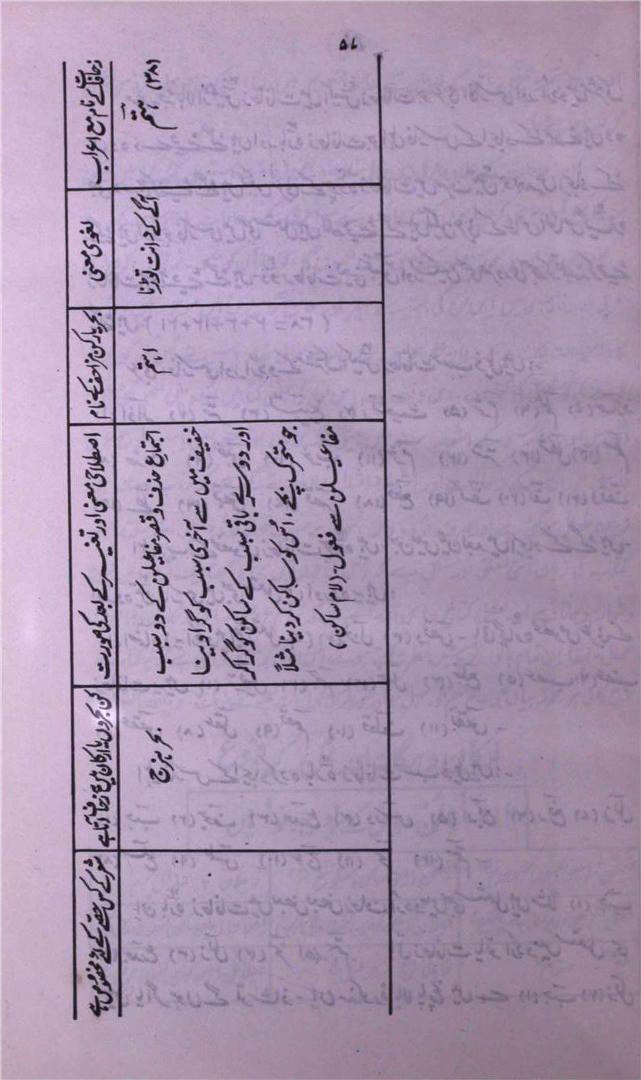 ۵۷
زحافات کے نام مع اعراب
لغوی معنی
بحر یا رکن مزاحف کے نام
اصطلاحی معنی اور تغیّر کے بعد کی صورت
کن بحروں یا ارکان میں زحاف آتا ہے
شعر کے کس حصّے کے لئے مخصوص ہے
(۳۸) ہَتْم
آگے کے دانت توڑنا
اہتم
اجتماع حذف و قصر، مفاعیلن کے دو سبب
خفیف میں سے آخری سبب کو گرا دینا
اور دوسرے باقی سبب کے ساکن کو گرا کر
جو متحرک بچے، اُس کو ساکن کر دینا مثلاً
مفاعیلن سے فعول۔ (لام ساکن)
بحر ہزج